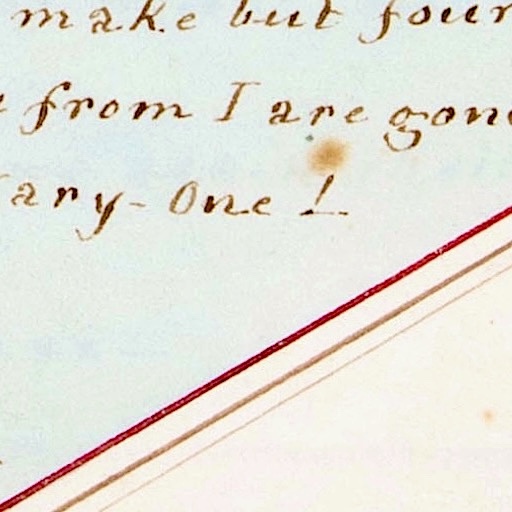 make but four
from I are gone
ary-One!